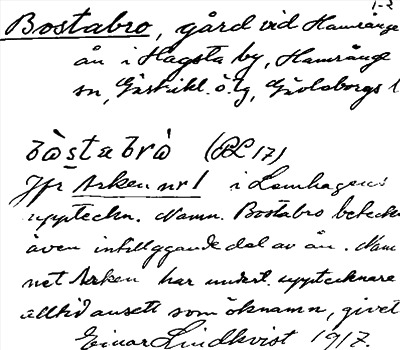 1-2
Bostabro, gård vid Hamrånge
ån i Hagsta by, Hamrånge
sn, Gästrikl. ö. tg, Gävleborgs l
bòstabrò (RL 17)
Jfr Arken nr 1 i Lenhagens
uppteckn. Namn. Bostabro beteckn
även intilliggande del av ån. Nam
net Arken har undert. upptecknare
alltid ansett som öknamn, givet
Einar Lindkvist 1917.